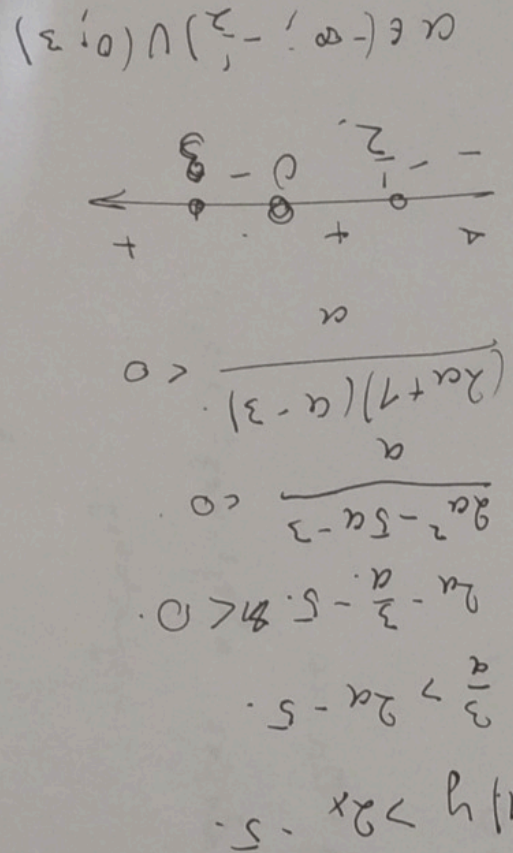 1) y > 2x - 5.
3/a > 2a - 5.
2a - 3/a - 5 < 0.
(2a² - 5a - 3)/a < 0.
((2a+1)(a-3))/a < 0
+ +
- -1/2 0 - 3
a ∈ (-∞; -1/2) ∪ (0; 3)